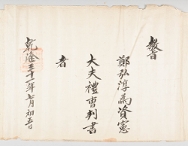 敎旨
鄭弘淳爲資憲
大夫禮曹判書
者
乾隆三十一年七月初五日